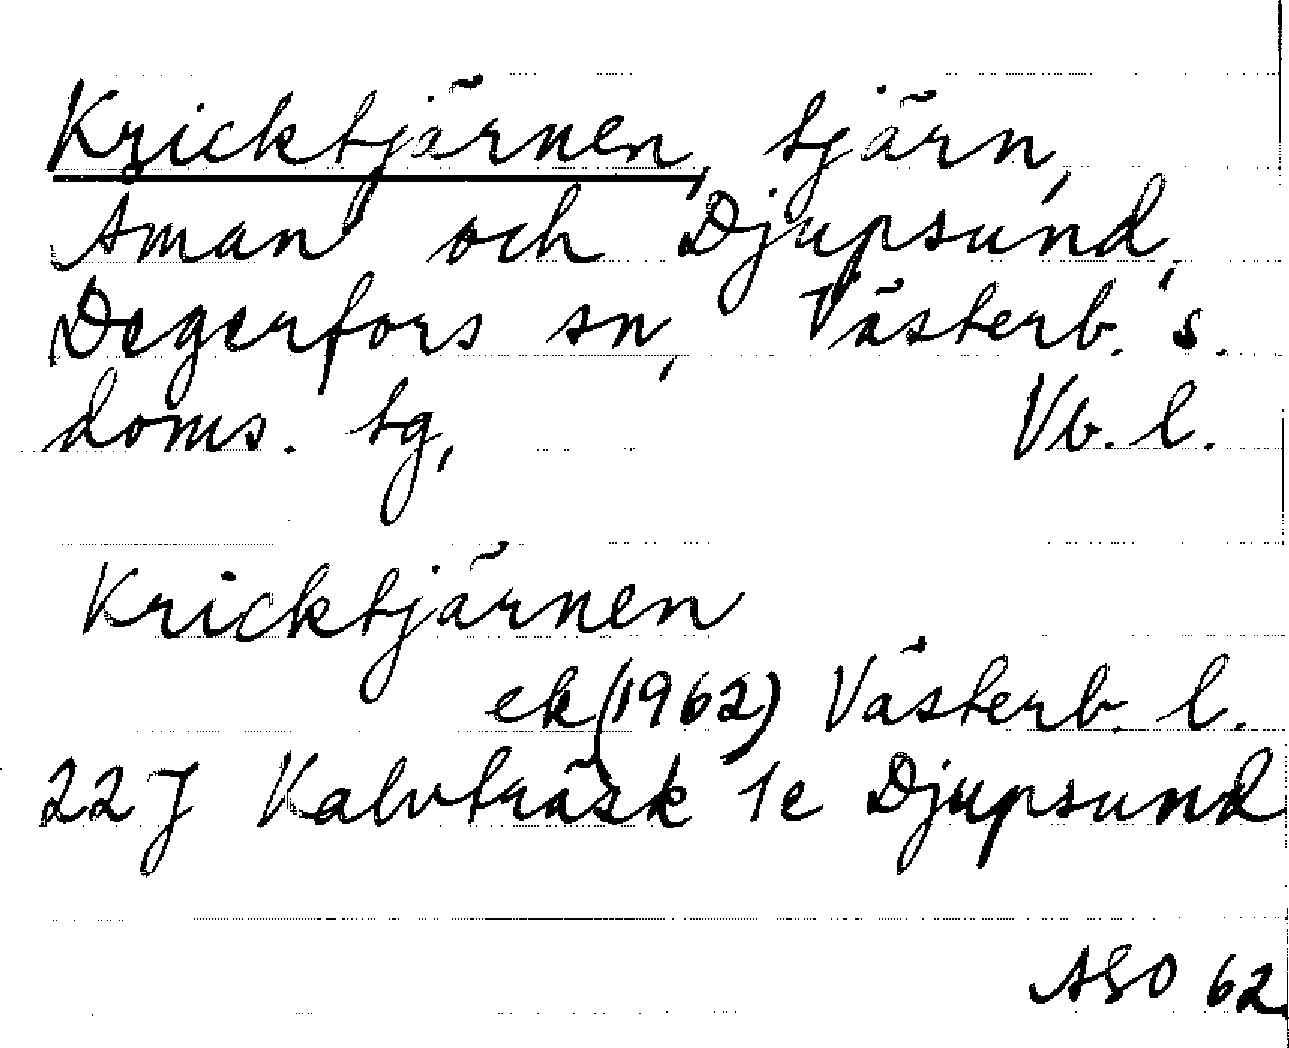 Kricktjärnen, tjärn,
Åman och Djupsund,
Degerfors sn, Västerb. s.
doms. tg, Vb. l.
Kricktjärnen
ek (1962) Västerb. l.
22 J Kalvträsk 1e Djupsund
ASO 62